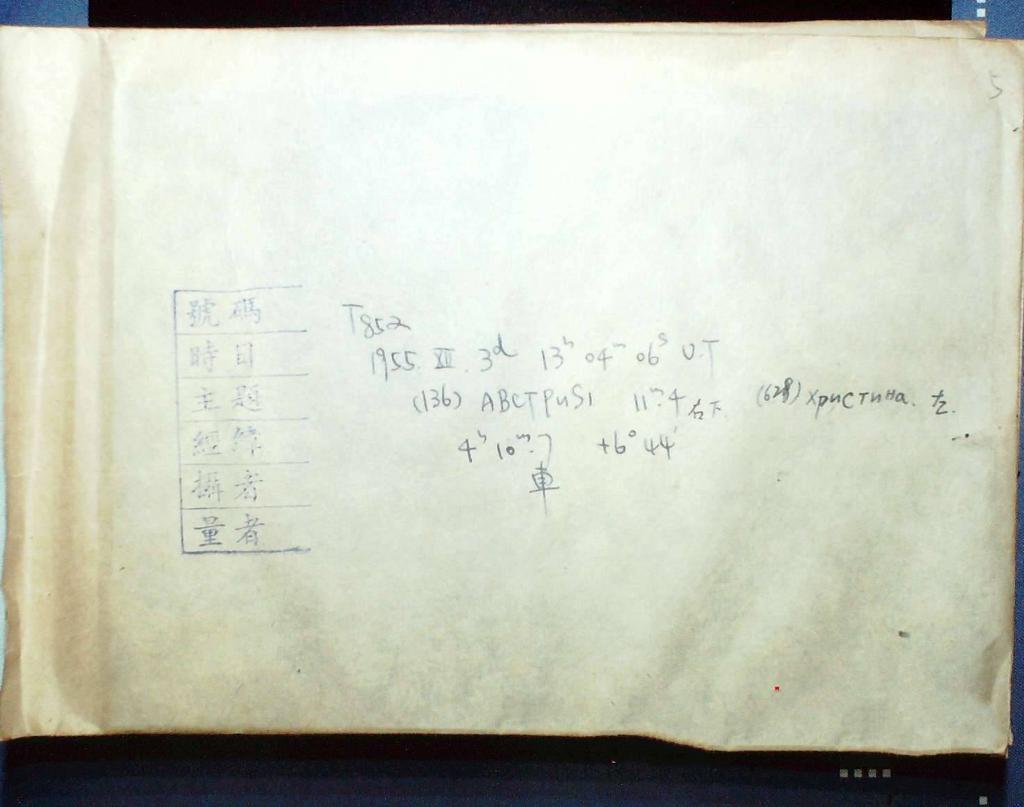 5
號碼 T852
時日 1955. XII. 3ᵈ 13ʰ 04ᵐ 06ˢ U.T
主題 (136) АВСТРИЯ 11ᵐ.4 右下. (628) Христина. 左.
經緯 4ʰ 10ᵐ.7 +6° 44′
攝者 車
量者